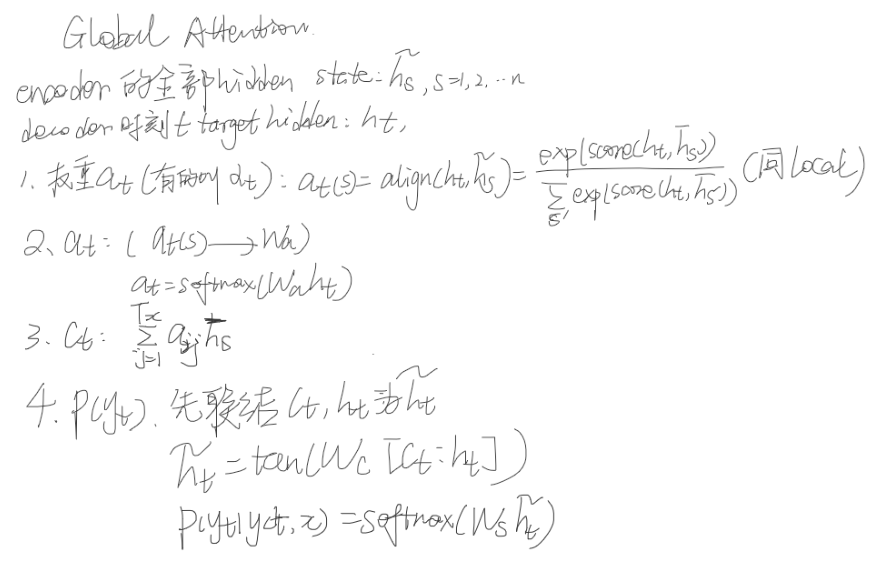 Global Attention
encoder 的全部hidden state: h̃s, s=1,2,…n
decoder 时刻t target hidden: ht,
1. 权重at (有的叫αt): at(s) = align(ht, h̃s) = exp(score(ht, h̄s)) / Σs' exp(score(ht, h̄s')) (同 local)
2、at: ( at(s) → Wa)
at = softmax(Waht)
3、Ct: Σ_{j=1}^{Tx} aij h̄s
4. p(yt). 先联结 Ct, ht 为 h̃t
h̃t = tan(Wc [Ct:ht])
p(yt|y<t, x) = softmax(Ws h̃t)